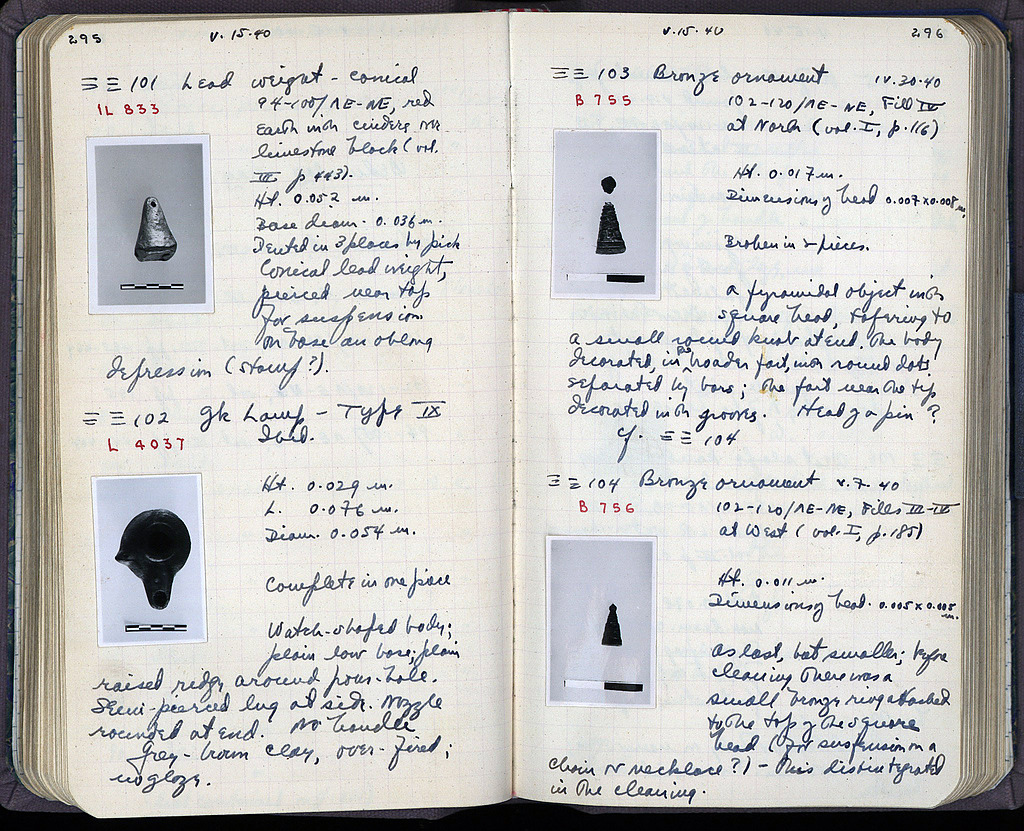 295
V. 15. 40
ΞΞ 101 Lead weight - conical
IL 833
94-100/ΛΕ-ΝΕ, red
earth with cinders
limestone block (vol.
III p 443).
Ht. 0.052 m.
Base diam. 0.036 m.
Dented in 3 places by pick
Conical lead weight,
pierced near top
for suspension
On base an oblong
depression (stamp?).
ΞΞ 102 Gk Lamp - Type IX
Ibid.
L 4037
Ht. 0.029 m.
L. 0.076 m.
Diam. 0.054 m.
Complete in one piece
Watch-shaped body;
plain low base; plain
raised ridge around pour-hole.
Semi-pierced lug at side. Nozzle
rounded at end. No handle
Grey-brown clay, over-fired;
no glaze.
V. 15. 40
296
ΞΞ 103 Bronze ornament IV. 30. 40
B 755
102-120/ΛΕ-ΝΕ, Fill IV
at North (vol. I, p. 116)
Ht. 0.017 m.
Dimensions of head 0.007 x 0.008 m.
Broken in 2 pieces.
A pyramidal object with
square head, tapering to
a small round knob at end. The body
decorated, in the broader part, with round dots
separated by bars; the part near the top
decorated with grooves. Head of a pin?
Cf. ΞΞ 104
ΞΞ 104 Bronze ornament V. 7. 40
B 756
102-120/ΛΕ-ΝΕ, Fills III-IV
at West (vol. I, p. 185)
Ht. 0.011 m.
Dimensions of head. 0.005 x 0.005 m.
As last, but smaller; before
cleaning there was a
small bronze ring attached
to the top of the square
head (for suspension on a
chain or necklace?) - This disintegrated
in the cleaning.